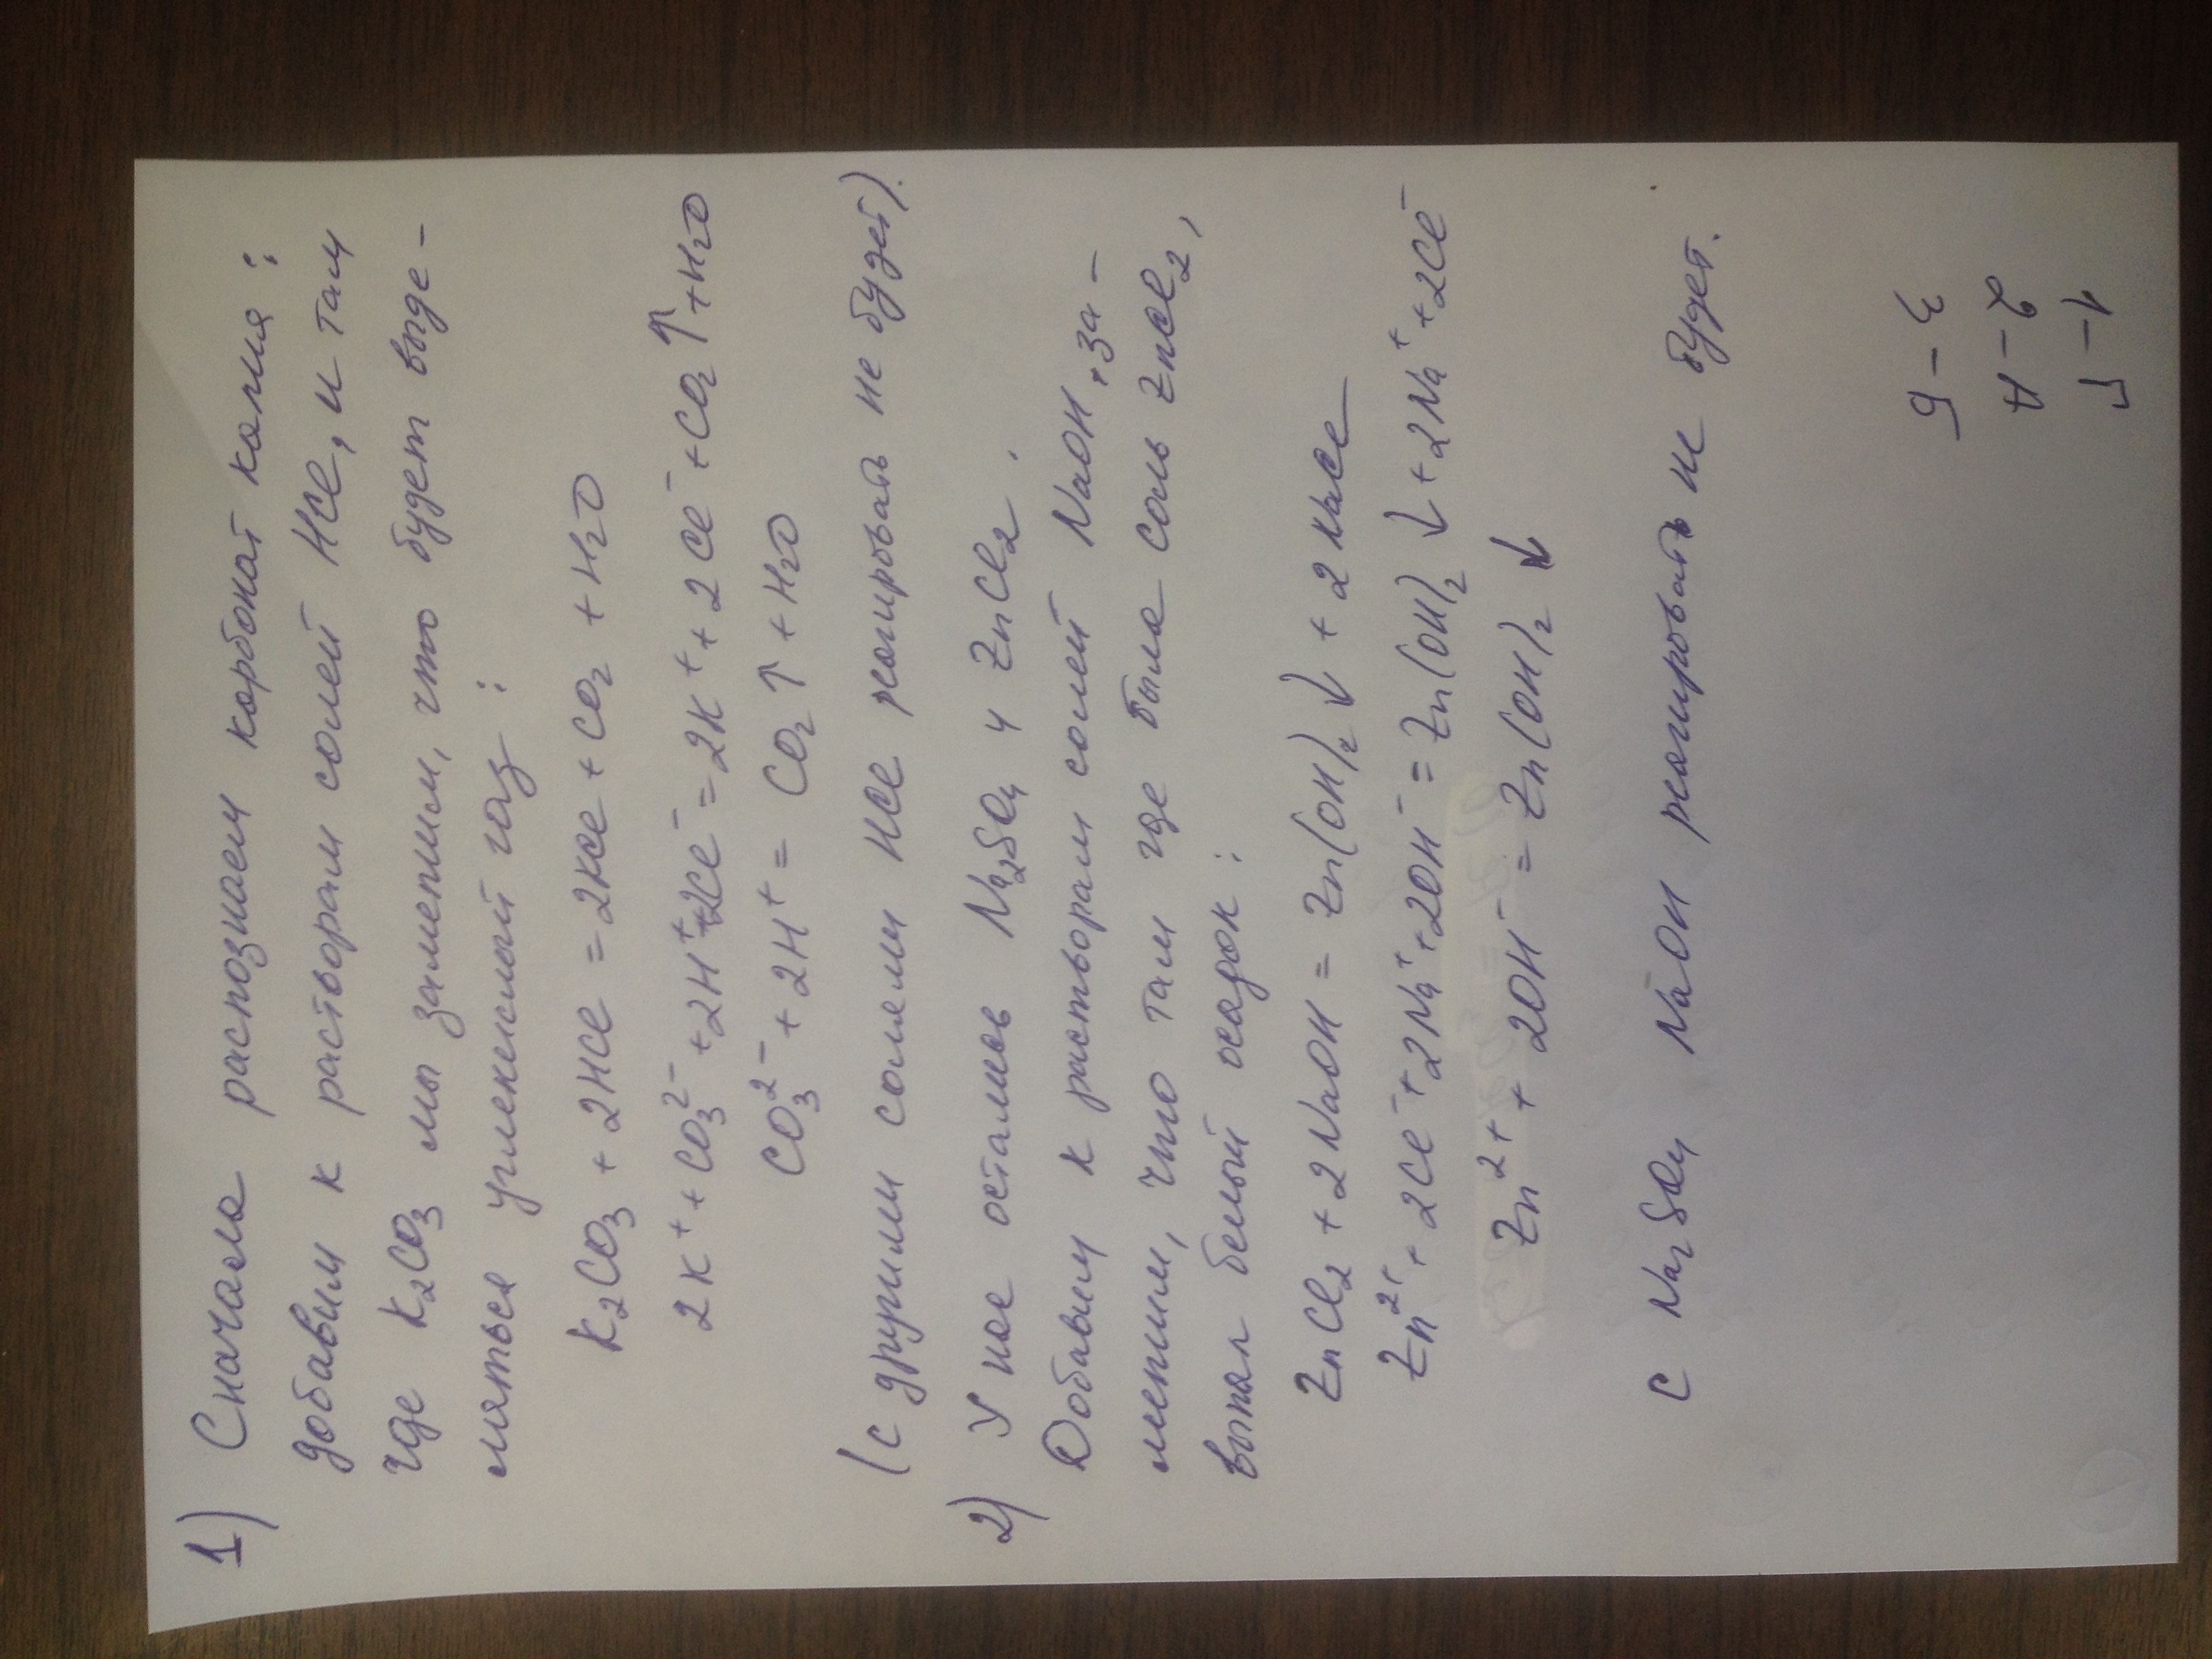 1) Сначала распознаем карбонат калия:
добавим к растворам солей HCl, и там
где K₂CO₃ мы заметим, что будет выде-
ляться углекислый газ:
K₂CO₃ + 2HCl = 2KCl + CO₂ + H₂O
2K⁺ + CO₃²⁻ + 2H⁺ + 2Cl⁻ = 2K⁺ + 2Cl⁻ + CO₂↑ + H₂O
CO₃²⁻ + 2H⁺ = CO₂↑ + H₂O
(с другими солями HCl реагировать не будет).
2) У нас остались Na₂SO₄ и ZnCl₂.
Добавим к растворам солей NaOH, за-
метим, что там где была соль ZnCl₂,
выпал белый осадок:
ZnCl₂ + 2NaOH = Zn(OH)₂↓ + 2NaCl
Zn²⁺ + 2Cl⁻ + 2Na⁺ + 2OH⁻ = Zn(OH)₂↓ + 2Na⁺ + 2Cl⁻
Zn²⁺ + 2OH⁻ = Zn(OH)₂↓
С Na₂SO₄ NaOH реагировать не будет.
Б – 3
А – 2
Г – 1